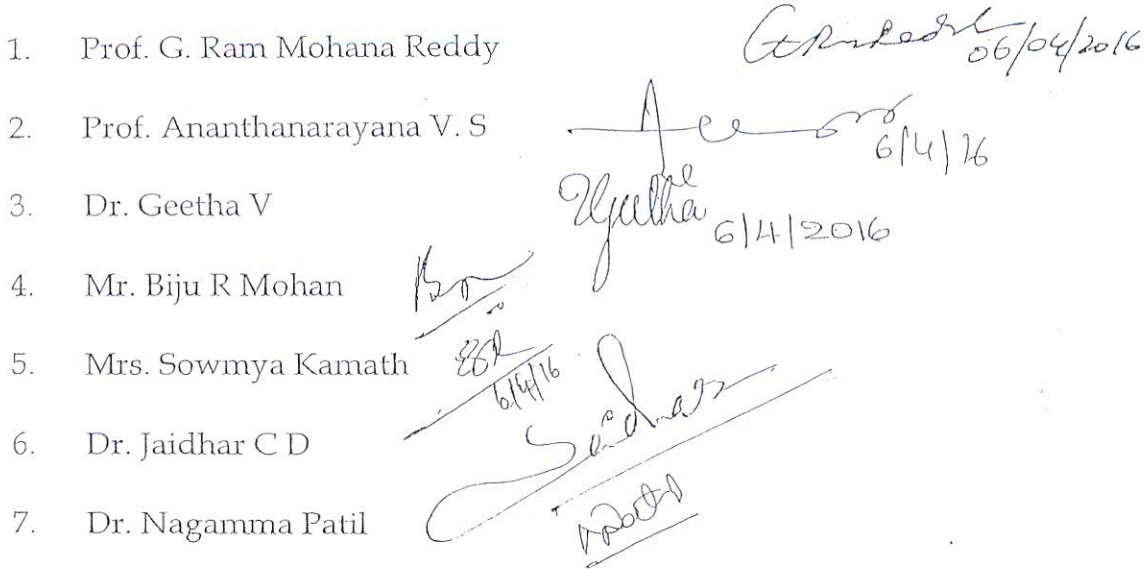 1. Prof. G. Ram Mohana Reddy 06/04/2016
2. Prof. Ananthanarayana V. S 6/4/16
3. Dr. Geetha V 6/4/2016
4. Mr. Biju R Mohan
5. Mrs. Sowmya Kamath 6/4/16
6. Dr. Jaidhar C D
7. Dr. Nagamma Patil